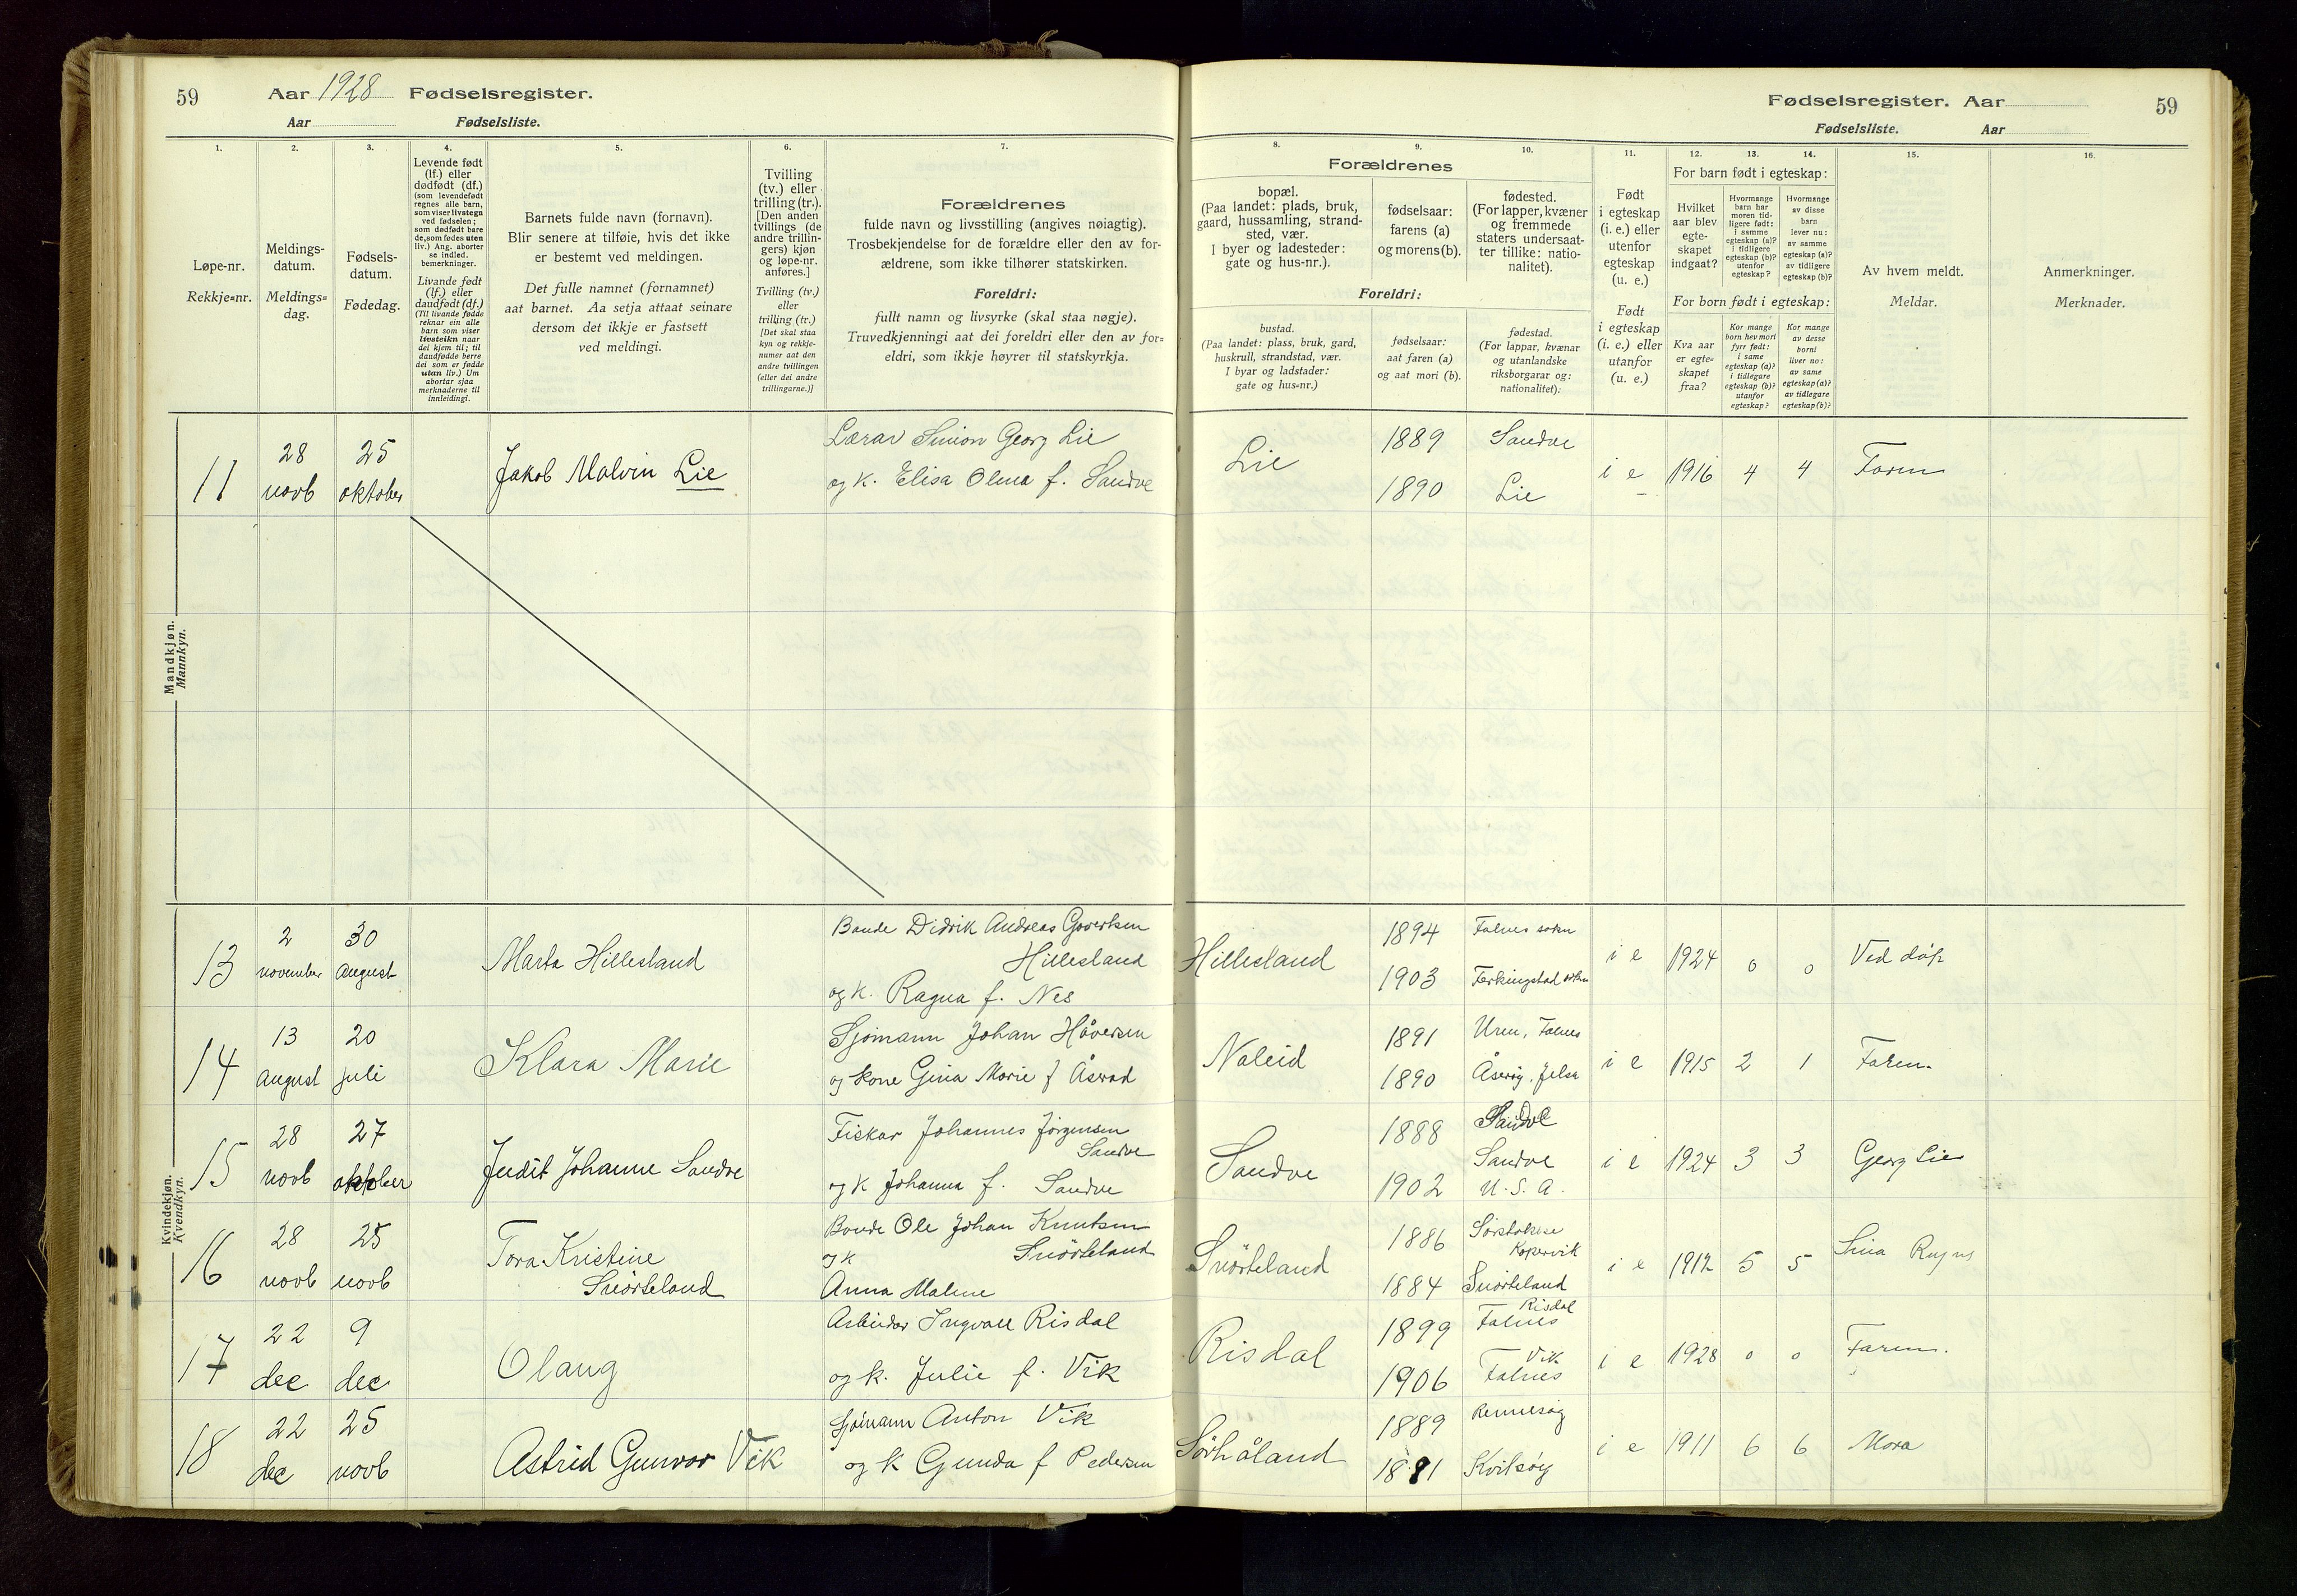 59 Aar 1928 Fødselsregister.
Aar Fødselsliste.
Fødselsregister. Aar 59
Fødselsliste. Aar
1. 2. 3. 4. 5. 6. 7. 8. 9. 10. 11. 12. 13. 14. 15. 16.
Løpe-nr.
Rekkje=nr.
Meldings-
datum.
Meldings=
dag.
Fødsels-
datum.
Fødedag.
Levende født
(lf.) eller
dødfødt (df.)
(som levendefødt
regnes alle barn,
som viser livstegn
ved fødselen;
som dødfødt bare
de, som fødes uten
liv.) Ang. aborter
se indled.
bemerkninger.
Livande født
(lf.) eller
daudfødt (df.)
(Til livande fødde
reknar ein alle
barn som viser
livsteikn naar
dei kjem til; til
daudfødde berre
dei som er fødde
utan liv.) Um
abortar sjaa
merknaderne til
innleidingi.
Barnets fulde navn (fornavn).
Blir senere at tilføie, hvis det ikke
er bestemt ved meldingen.
Det fulle namnet (fornamnet)
aat barnet. Aa setja attaat seinare
dersom det ikkje er fastsett
ved meldingi.
Tvilling
(tv.) eller
trilling (tr.).
[Den anden
tvillings (de
andre trillin-
gers) kjøn
og løpe-nr.
anføres.]
Tvilling (tv.)
eller
trilling (tr.)
[Det skal staa
kyn og rekkje-
numer aat den
andre tvillingen
(eller dei andre
trillingarne.)]
Forældrenes
fulde navn og livsstilling (angives nøiagtig).
Trosbekjendelse for de forældre eller den av for-
ældrene, som ikke tilhører statskirken.
Foreldri:
fullt namn og livsyrke (skal staa nøgje).
Truvedkjenningi aat dei foreldri eller den av for=
eldri, som ikkje høyrer til statskyrkja.
Forældrenes
bopæl.
(Paa landet: plads, bruk,
gaard, hussamling, strand-
sted, vær.
I byer og ladesteder:
gate og hus-nr.).
fødselsaar:
farens (a)
og morens (b).
fødested.
(For lapper, kvæner
og fremmede
staters undersaat-
ter tillike: natio-
nalitet).
Foreldri:
bustad.
(Paa landet: plass, bruk, gard,
huskrull, strandstad, vær.
I byar og ladstader:
gate og hus=nr.)
fødselsaar:
aat faren (a)
og aat mori (b).
fødestad.
(For lappar, kvænar
og utanlandske
riksborgarar og:
nationalitet).
Født
i egteskap
(i. e.) eller
utenfor
egteskap
(u. e.)
Født
i egteskap
(i. e.) eller
utanfor
(u. e.)
For barn født i egteskap:
Hvilket
aar blev
egte-
skapet
indgaat?
Hvormange
barn har
moren tid-
ligere født:
i samme
egteskap (a)?
i tidligere
egteskap (b)?
utenfor
egteskap?
Hvormange
av disse
barn
lever nu:
av samme
egteskap (a)?
av tidligere
egteskap (b)?
For born født i egteskap:
Kva aar
er egte=
skapet
fraa?
Kor mange
born hev mori
fyrr født:
i same
egteskap (a)?
i tidlegare
egteskap (b)?
utanfor
egteskap?
Kor mange
av desse
borni
liver no:
av same
egteskap (a)?
av tidlegare
egteskap (b)?
Av hvem meldt.
Meldar.
Anmerkninger.
Merknader.
Mandkjøn.
Mannkyn.
11
28
novb
25
oktober
Jakob Malvin Lie
Lærar Simon Georg Lie
og k. Elisa Olina f. Sandve
Lie
1889
1890
Sandve
Lie
i e 1916 4 4 Faren
Kvindekjøn.
Kvendkyn.
13
2
november
30
August
Marta Hillesland
Bonde Didrik Andreas Govertsen
Hillesland
og k. Ragna f. Nes
Hillesland
1894
1903
Falnes sokn
Ferkingstad sokn
i e 1924 0 0 Ved dåp
14
13
August
20
juli
Klara Marie
Sjømann Johan Håversen
og kone Gina Marie f
Naleid
1891
1890
Falnes
Jelsa
i e 1915 2 1 Faren.
15
28
novb
27
oktober
Judit Johanne Sandve
Fiskar Johannes Jörgensen
Sandve
og k Johanna f. Sandve
Sandve
1888
1902
Sandve
Sandve
U. S. A.
i e 1924 3 3 Georg Lie
16
28
novb
25
novb
Tora Kristine
Snörteland
Bonde Ole Johan Knutsen
og k Snörteland
Anna Maline
Snörteland
1886
1884
Kopervik
Snörteland
i e 1912 5 5
17
22
dec
9
dec
Olaug
Arbeidar Ingvall Risdal
og k. Julie f. Vik
Risdal
1899
1906
Risdal
Falnes
Vik
Falnes
i e 1928 0 0 Faren.
18
22
dec
25
novb
Astrid Gunvor Vik
Sjömann Anton Vik
og k Gunda f Pedersen
Sörhåland
1889
1881
Rennesøy
Kvitsøy
i e 1911 6 6 Mora